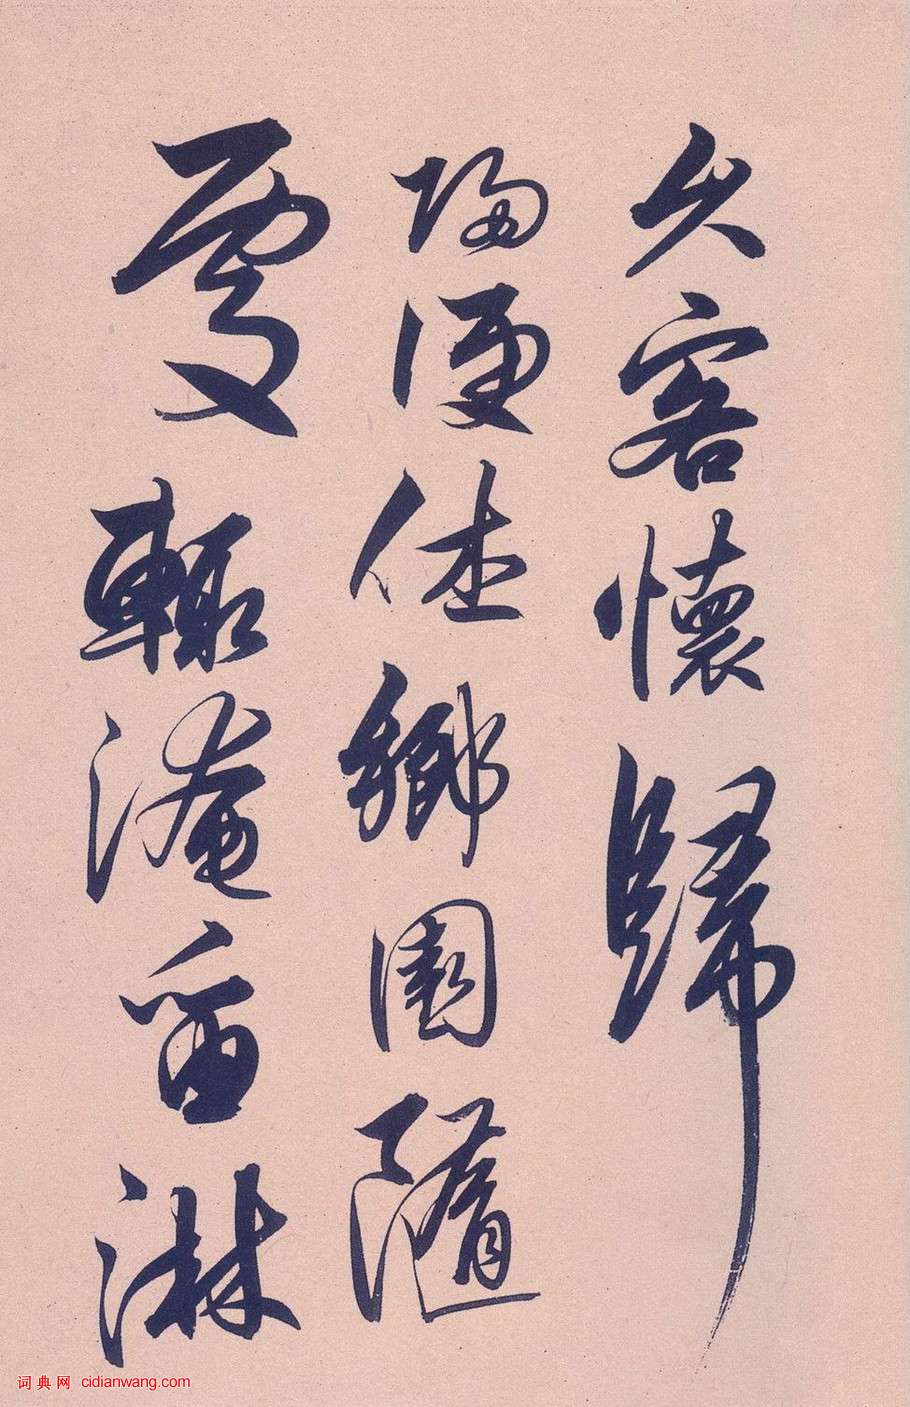 久客懷歸
歸便佳鄉園隨
處輒淹留淋
词典网 cidianwang.com